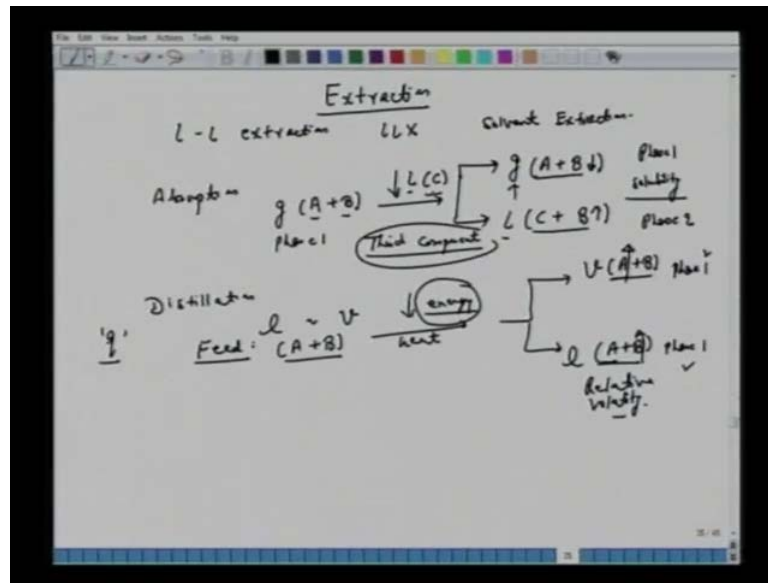 File Edit View Insert Actions Tools Help
Extraction
L-L extraction LLX Solvent Extraction.
Absorption g (A + B) ↓ L (C) → g (A + B↓) Phase 1
↑ solubility
phase 1 Third Component L (C + B↑) Phase 2
Distillation
'q' Feed: l ~ v (A + B) ↓ energy heat → v (A↑+B) phase 1
l (A+B↑) phase 1
Relative
volatility.
35/45